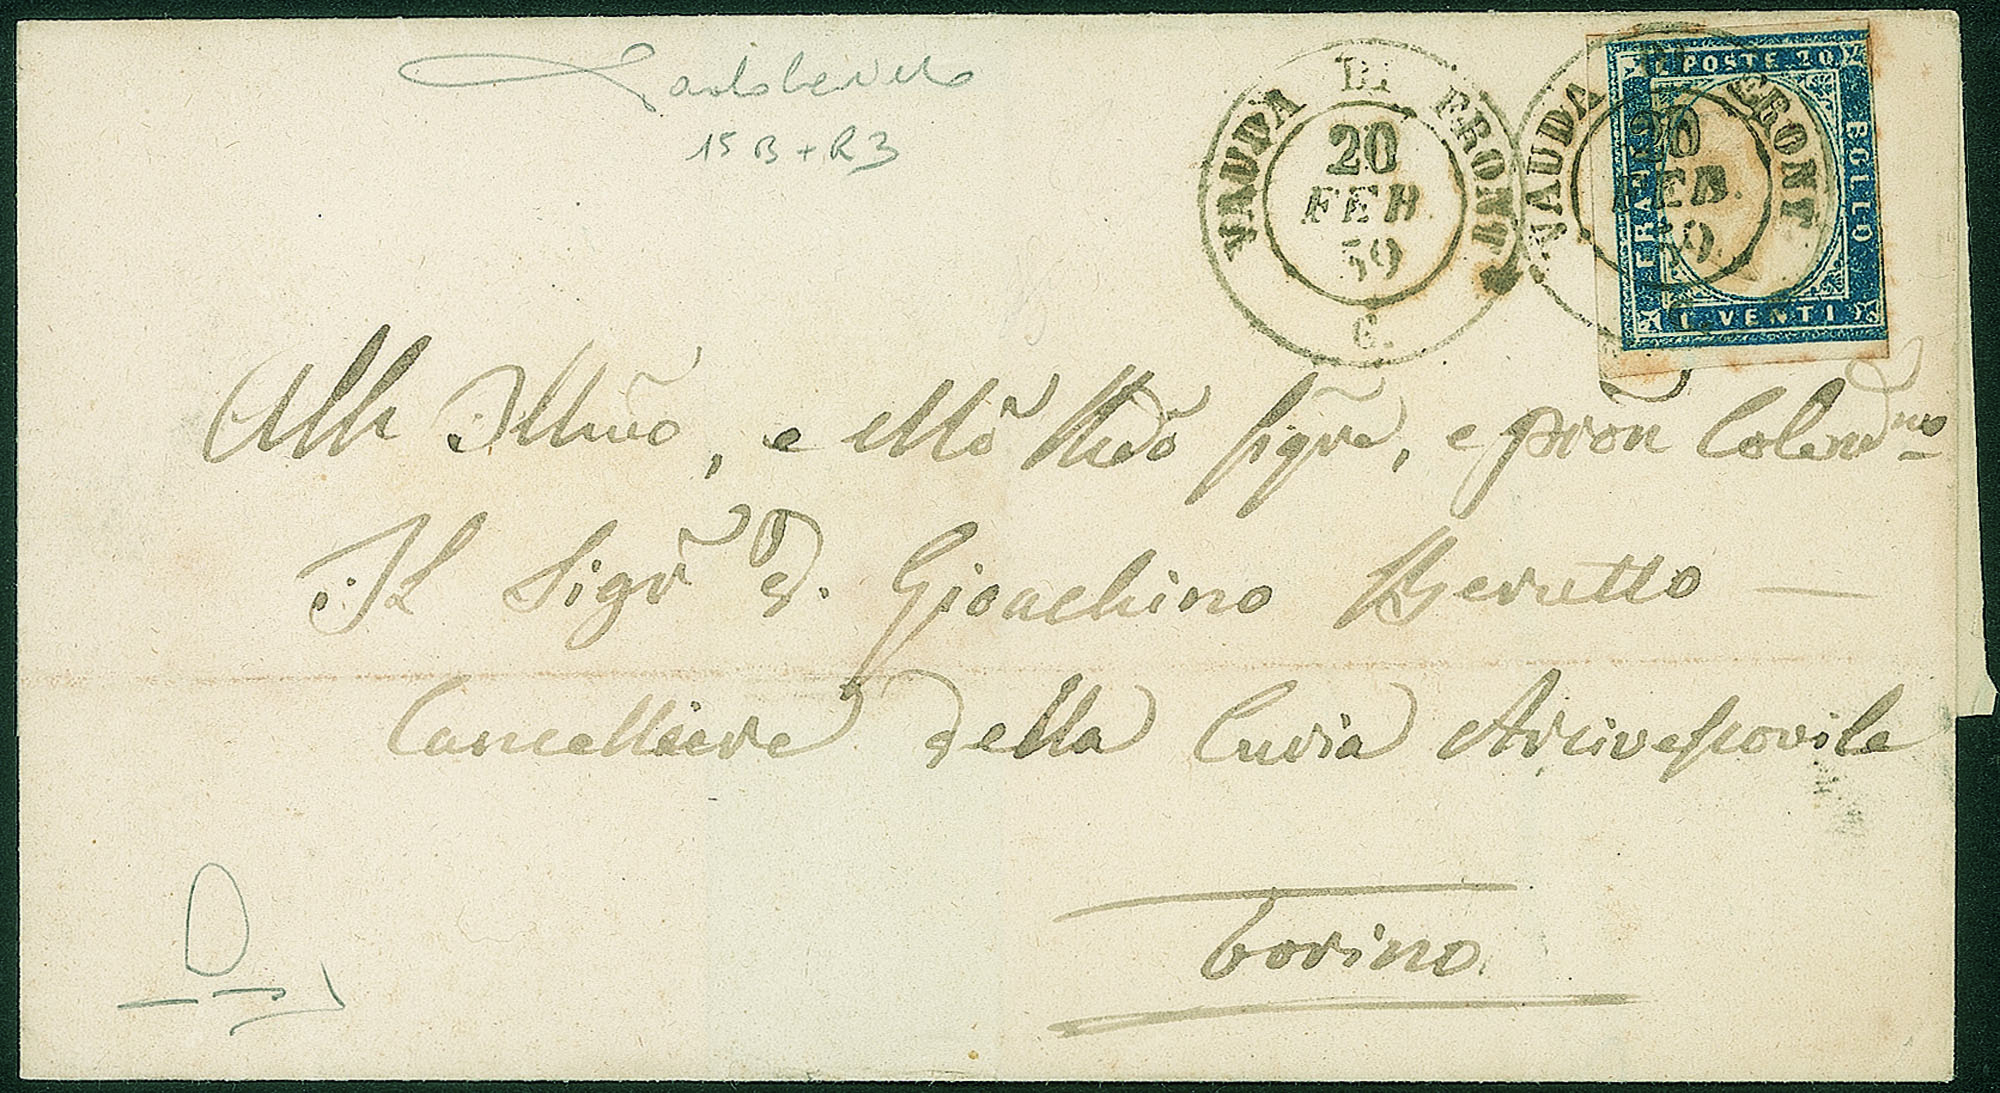 15 B + R3
VAUDA DI FRONT
20
FEB.
59
C.
VAUDA DI FRONT
20
FEB.
59
C.
C. POSTE 20
FRANCO
BOLLO
C. VENTI
All Illmõ, e Mtõ Rñdõ Sigre, e pron Colendmo
Il Sigr D. Gioachino Berutto
Cancelliere della Curia Arcivescovile
Torino